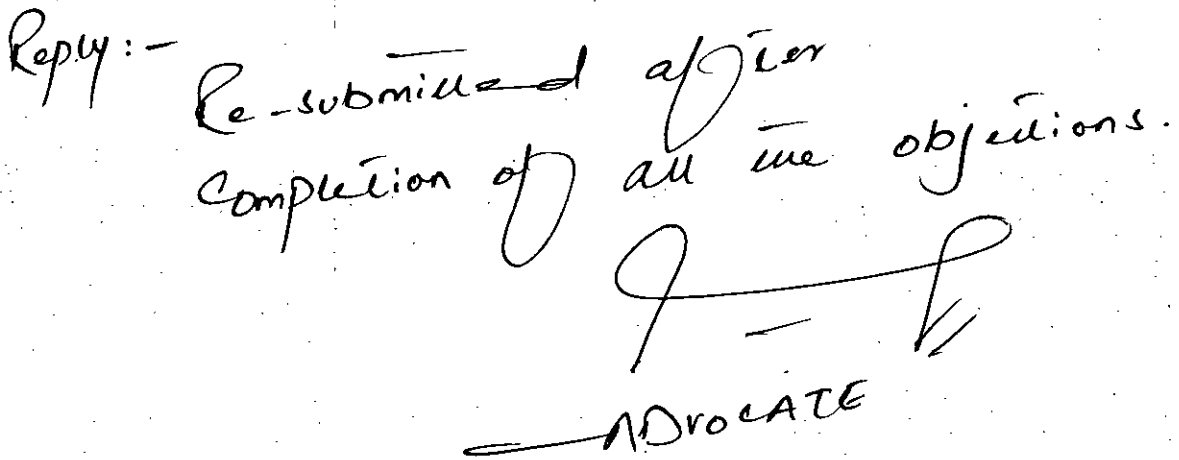 Reply:-
Re-submitted after
completion of all the objections.
ADVOCATE